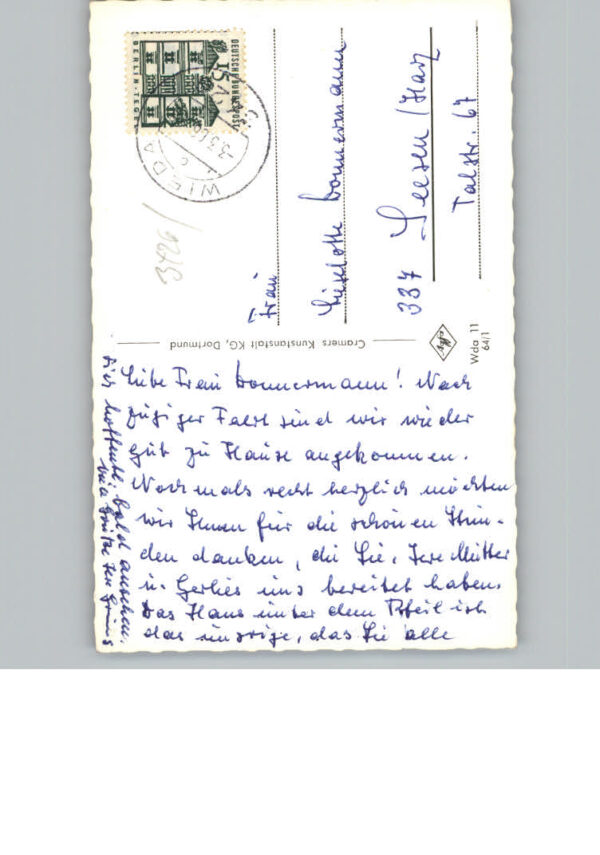 Liebe Frau Bonnermann! Nach
zügiger Fahrt sind wir wieder
gut zu Hause angekommen.
Nochmals recht herzlich möchten
wir Ihnen für die schönen Stun-
den danken, die Sie, Ihre Mutter
u. Gerlies uns bereitet haben.
Das Haus unter dem Pfeil ist
das unsrige, das Sie alle
sich hoffentl. bald ansehen.
Frau
Liselotte Bonnermann
337 Seesen/Harz
Talstr. 67
DEUTSCHE BUNDESPOST
15
BERLIN-TEGEL
WIEDA
3426/
Cramers Kunstanstalt KG, Dortmund
Wda 11
64/1